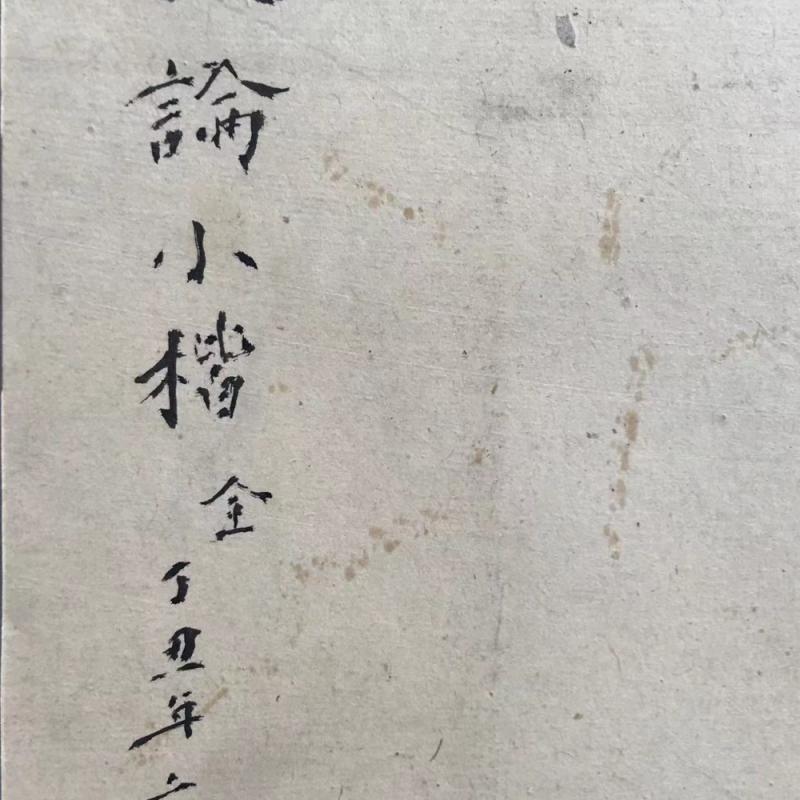 論小楷全
丁丑年